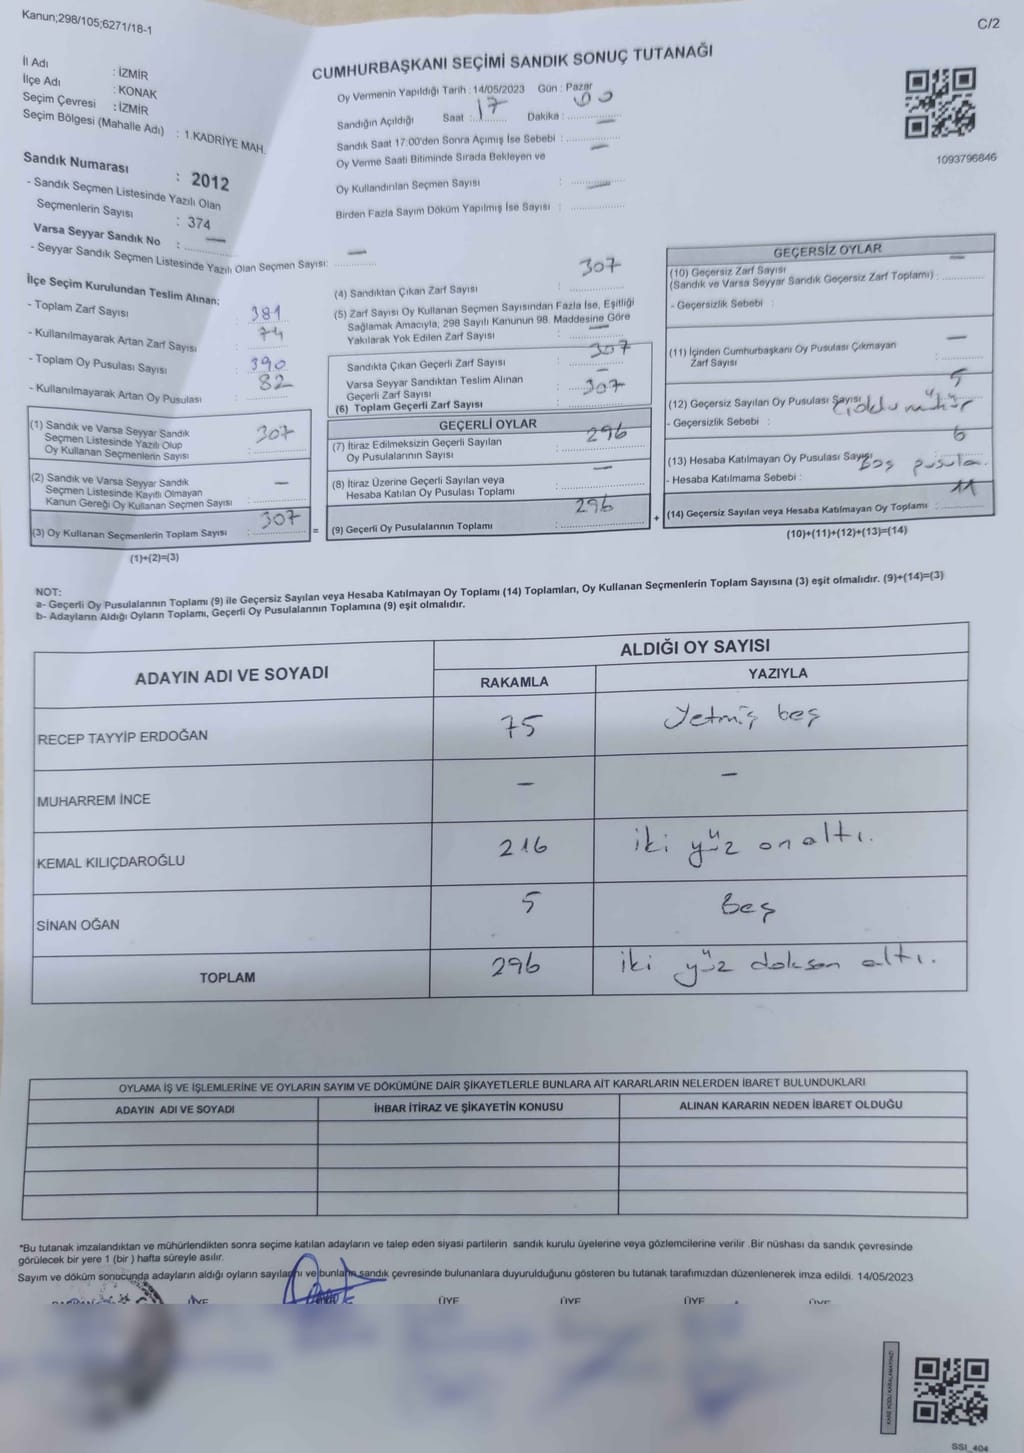 Kanun;298/105;6271/18-1
C/2
İl Adı : İZMİR
İlçe Adı : KONAK
Seçim Çevresi : İZMİR
Seçim Bölgesi (Mahalle Adı) : 1.KADRİYE MAH.
Sandık Numarası : 2012
- Sandık Seçmen Listesinde Yazılı Olan
Seçmenlerin Sayısı : 374
Varsa Seyyar Sandık No : —
- Seyyar Sandık Seçmen Listesinde Yazılı Olan Seçmen Sayısı: —
CUMHURBAŞKANI SEÇİMİ SANDIK SONUÇ TUTANAĞI
Oy Vermenin Yapıldığı Tarih : 14/05/2023 Gün : Pazar
Sandığın Açıldığı Saat : 17 Dakika : 00
Sandık Saat 17:00'den Sonra Açımış İse Sebebi : —
Oy Verme Saati Bitiminde Sırada Bekleyen ve
Oy Kullandırılan Seçmen Sayısı : —
Birden Fazla Sayım Döküm Yapılmış İse Sayısı :
1093796846
İlçe Seçim Kurulundan Teslim Alınan;
- Toplam Zarf Sayısı : 381
- Kullanılmayarak Artan Zarf Sayısı : 74
- Toplam Oy Pusulası Sayısı : 390
- Kullanılmayarak Artan Oy Pusulası : 82
(1) Sandık ve Varsa Seyyar Sandık
Seçmen Listesinde Yazılı Olup
Oy Kullanan Seçmenlerin Sayısı : 307
(2) Sandık ve Varsa Seyyar Sandık
Seçmen Listesinde Kayıtlı Olmayan
Kanun Gereği Oy Kullanan Seçmen Sayısı : —
(3) Oy Kullanan Seçmenlerin Toplam Sayısı : 307
(1)+(2)=(3)
=
(4) Sandıktan Çıkan Zarf Sayısı : 307
(5) Zarf Sayısı Oy Kullanan Seçmen Sayısından Fazla İse, Eşitliği
Sağlamak Amacıyla, 298 Sayılı Kanunun 98. Maddesine Göre
Yakılarak Yok Edilen Zarf Sayısı : —
Sandıkta Çıkan Geçerli Zarf Sayısı : 307
Varsa Seyyar Sandıktan Teslim Alınan
Geçerli Zarf Sayısı : —
(6) Toplam Geçerli Zarf Sayısı : 307
GEÇERLİ OYLAR
(7) İtiraz Edilmeksizin Geçerli Sayılan
Oy Pusulalarının Sayısı : 296
(8) İtiraz Üzerine Geçerli Sayılan veya
Hesaba Katılan Oy Pusulası Toplamı : —
(9) Geçerli Oy Pusulalarının Toplamı : 296
+
GEÇERSİZ OYLAR
(10) Geçersiz Zarf Sayısı
(Sandık ve Varsa Seyyar Sandık Geçersiz Zarf Toplamı) :
- Geçersizlik Sebebi :
(11) İçinden Cumhurbaşkanı Oy Pusulası Çıkmayan
Zarf Sayısı : —
(12) Geçersiz Sayılan Oy Pusulası Sayısı : 5
- Geçersizlik Sebebi : mühür
(13) Hesaba Katılmayan Oy Pusulası Sayısı : 6
- Hesaba Katılmama Sebebi : Boş pusula.
(14) Geçersiz Sayılan veya Hesaba Katılmayan Oy Toplamı : 11
(10)+(11)+(12)+(13)=(14)
NOT:
a- Geçerli Oy Pusulalarının Toplamı (9) ile Geçersiz Sayılan veya Hesaba Katılmayan Oy Toplamı (14) Toplamları, Oy Kullanan Seçmenlerin Toplam Sayısına (3) eşit olmalıdır. (9)+(14)=(3)
b- Adayların Aldığı Oyların Toplamı, Geçerli Oy Pusulalarının Toplamına (9) eşit olmalıdır.
ADAYIN ADI VE SOYADI ALDIĞI OY SAYISI
RAKAMLA YAZIYLA
RECEP TAYYİP ERDOĞAN 75 Yetmiş beş
MUHARREM İNCE — —
KEMAL KILIÇDAROĞLU 216 iki yüz on altı.
SİNAN OĞAN 5 Beş
TOPLAM 296 iki yüz doksan altı.
OYLAMA İŞ VE İŞLEMLERİNE VE OYLARIN SAYIM VE DÖKÜMÜNE DAİR ŞİKAYETLERLE BUNLARA AİT KARARLARIN NELERDEN İBARET BULUNDUKLARI
ADAYIN ADI VE SOYADI İHBAR İTİRAZ VE ŞİKAYETİN KONUSU ALINAN KARARIN NEDEN İBARET OLDUĞU
*Bu tutanak imzalandıktan ve mühürlendikten sonra seçime katılan adayların ve talep eden siyasi partilerin sandık kurulu üyelerine veya gözlemcilerine verilir .Bir nüshası da sandık çevresinde
görülecek bir yere 1 (bir ) hafta süreyle asılır.
Sayım ve döküm sonucunda adayların aldığı oyların sayılarını ve bunların sandık çevresinde bulunanlara duyurulduğunu gösteren bu tutanak tarafımızdan düzenlenerek imza edildi. 14/05/2023
ÜYE ÜYE ÜYE ÜYE ÜYE
SSİ_404